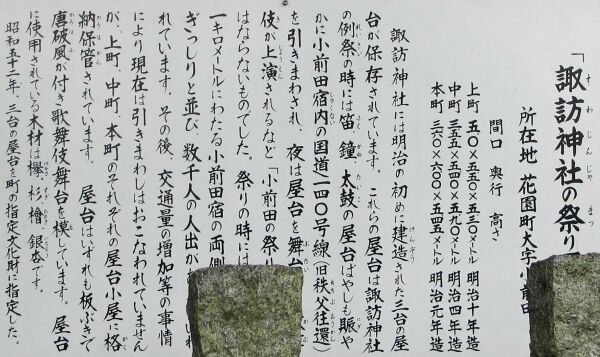 「諏訪神社の祭り
所在地 花園町大字小前田
間口 奥行 高さ
上町 五〇×五五〇×五三〇メートル 明治十年造
中町 三五五×五四五×五七〇メートル 明治四年造
本町 三六〇×六〇〇×五四五メートル 明治元年造
諏訪神社には明治の初めに建造された三台の屋
台が保存されています。これらの屋台は諏訪神社
の例祭の時には笛、鐘、太鼓の屋台ばやしも賑や
かに小前田宿内の国道一四〇号線(旧秩父往還)
を引きまわされ、夜は屋台を舞台
伎が上演されるなど「小前田の祭り
はならないものでした。祭りの時には
一キロメートルにわたる小前田宿の両側
ぎっしりと並び、数千人の人出が
れています。その後、交通量の増加等の事情
により現在は引きまわしはおこなわれていません
が、上町、中町、本町のそれぞれの屋台小屋に格
納保管されています。屋台はいずれも板ぶきで
唐破風が付き歌舞伎舞台を模しています。屋台
に使用されている木材は欅、杉、檜、銀杏です。
昭和五十二年、三台の屋台を町の指定文化財に指定した。